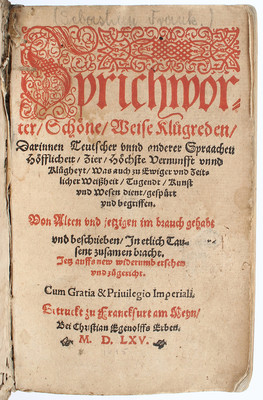 (Sebastian Franck)
Sprichwör-
ter/ Schöne/ Weise Klůgreden/
Darinnen Teutscher vnnd anderer Spraachen
Höfflicheit/ Zier/ Höchste Vernunfft vnnd
Klůgheyt/ Was auch zu Ewiger vnd Zeit-
licher Weißheit/ Tugendt/ Kunst
vnd Wesen dient/ gespürt
vnd begriffen.
Von Alten vnd jetzigen im brauch gehabt
vnd beschrieben/ In etlich Tau-
sent zusamen bracht.
Jetz auffs new widerumb ersehen
vnd zůgericht.
Cum Gratia & Priuilegio Imperiali.
Getruckt zu Franckfurt am Meyn/
Bei Christian Egenolffs Erben.
M. D. LXV.